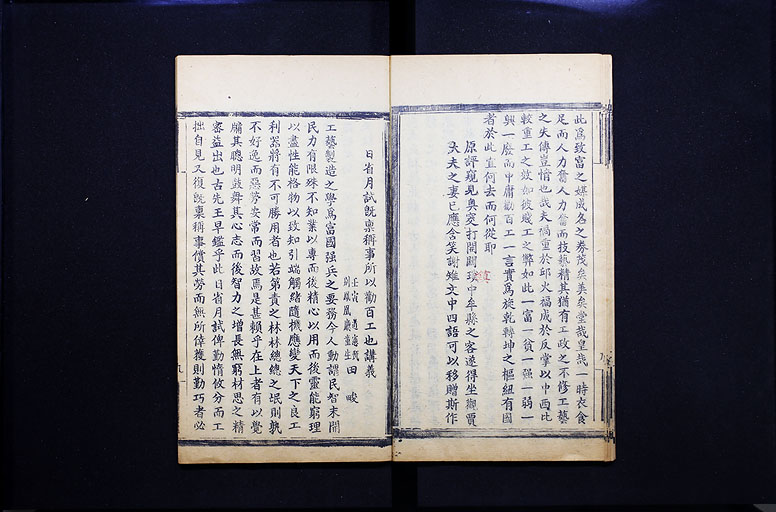 此爲致富之媒成名之券茂矣美矣堂哉皇哉一時衣食
足而人力奮人力奮而技藝精其猶有工政之不修工藝
之失傳豈惜也哉夫禍重於邱火福成於反掌以中西比
較重工之效如彼賤工之弊如此一富一貧一强一弱一
興一廢高中庸勸百工一言實爲旋乾轉坤之樞紐有國
者於此宜何去而何從耶
原評窺見奥窔打開關鍵中牟縣之客遂得坐觀賈
大夫之妻已應含笑謝雉文中四語可以移贈斯作
日省月試旣稟稱事所以勸百工也講義
壬寅 補 田畯
工藝製造之學爲富國强兵之要務今人動謂民智未開
民力有限殊不知業以專而後精心以用而後靈能窮理
以盡性能格物以致知引端觸緒隨機應變天下之良工
利器將有不可勝用者也若第責之林林總總之氓則孰
不好逸而惡勞安常而習故焉是甚賴乎在上者有以覺
牖其聰明鼓舞其心志而後智力之增長無窮材思之精
審益出也古先王早鑑乎此日省月試俾勤惰攸分而工
拙自見又復旣稟稱事償其勞而無所倖獲則勤巧者必